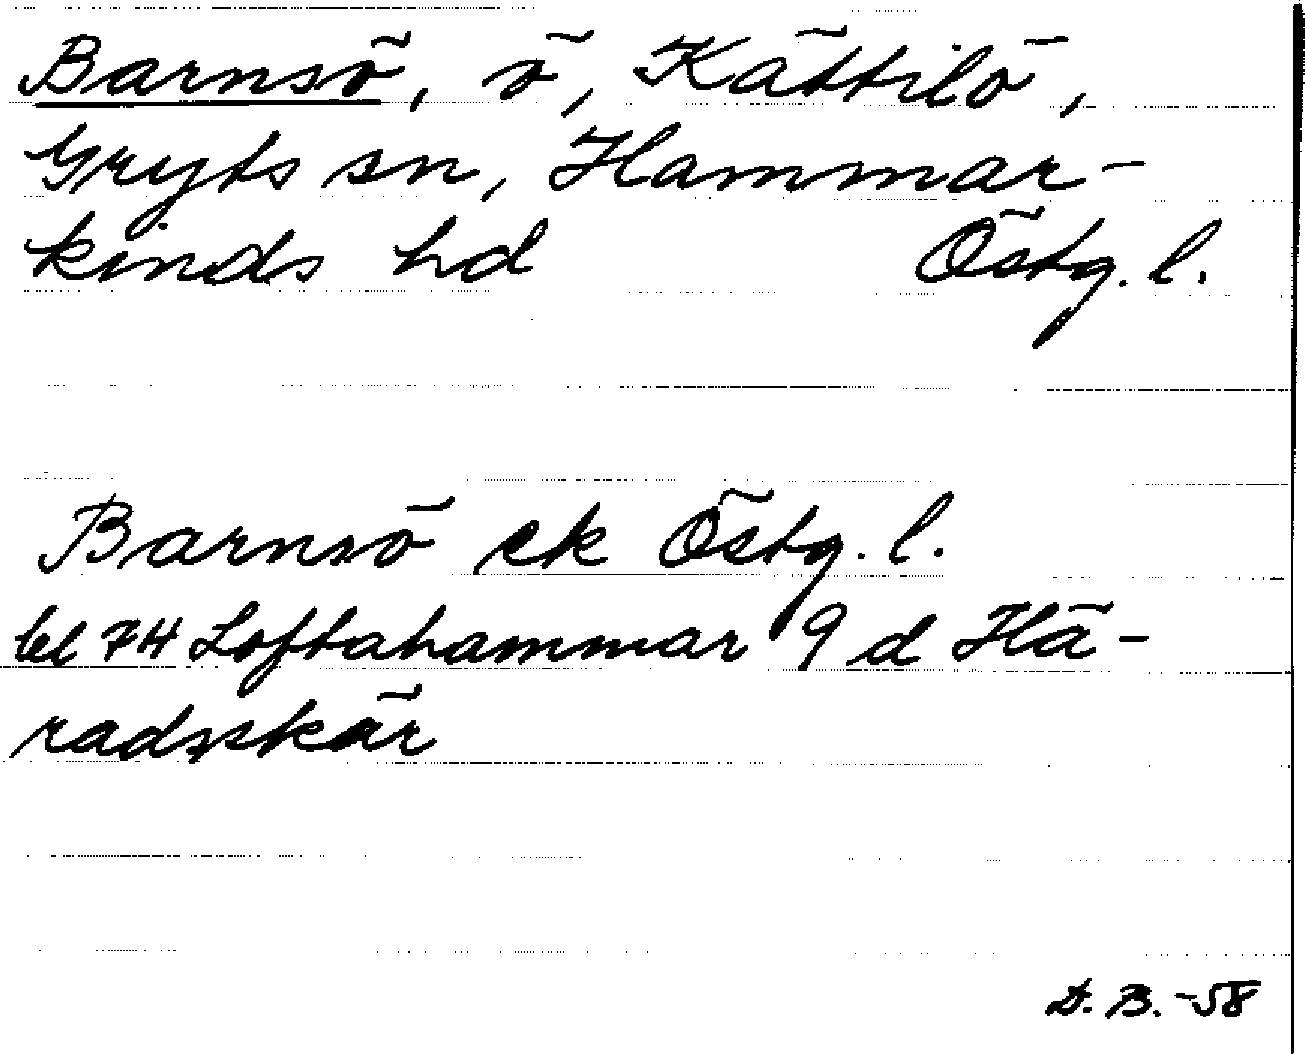 Barnsö, ö, Kättilö,
Gryts sn, Hammar-
kinds hd Östg. l.
Barnsö ek Östg. l.
bl 74 Loftahammar 9 d Hä-
radsskär
D. B. -58